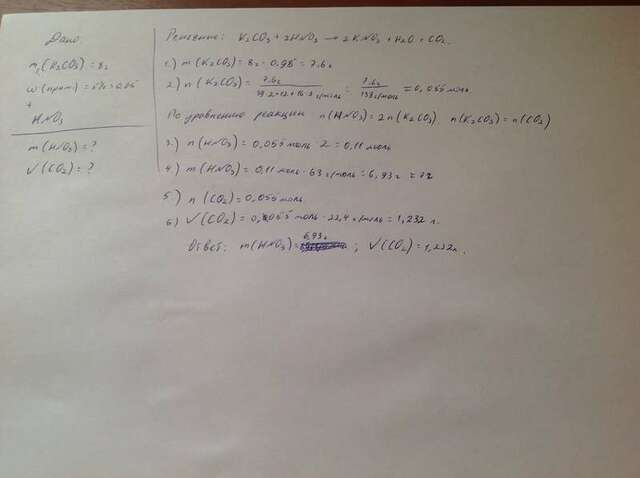 Дано:
m(K2CO3) = 8г
w(прим.) = 5% = 0.05
+
HNO3
m(HNO3) = ?
V(CO2) = ?
Решение: K2CO3 + 2HNO3 → 2KNO3 + H2O + CO2.
1.) m(K2CO3) = 8г · 0.95 = 7.6г
2.) n(K2CO3) = 7.6г / 39·2+12+16·3 г/моль = 7.6г / 138г/моль = 0,055 моль
По уравнению реакции n(HNO3) = 2n(K2CO3) n(K2CO3) = n(CO2)
3.) n(HNO3) = 0,055 моль · 2 = 0,11 моль
4.) m(HNO3) = 0,11 моль · 63 г/моль = 6,93г ≈ 7г
5.) n(CO2) = 0,055 моль.
6.) V(CO2) = 0,055 моль · 22,4 л/моль = 1,232 л.
Ответ: m(HNO3) = 6,93г ; V(CO2) = 1,232л.